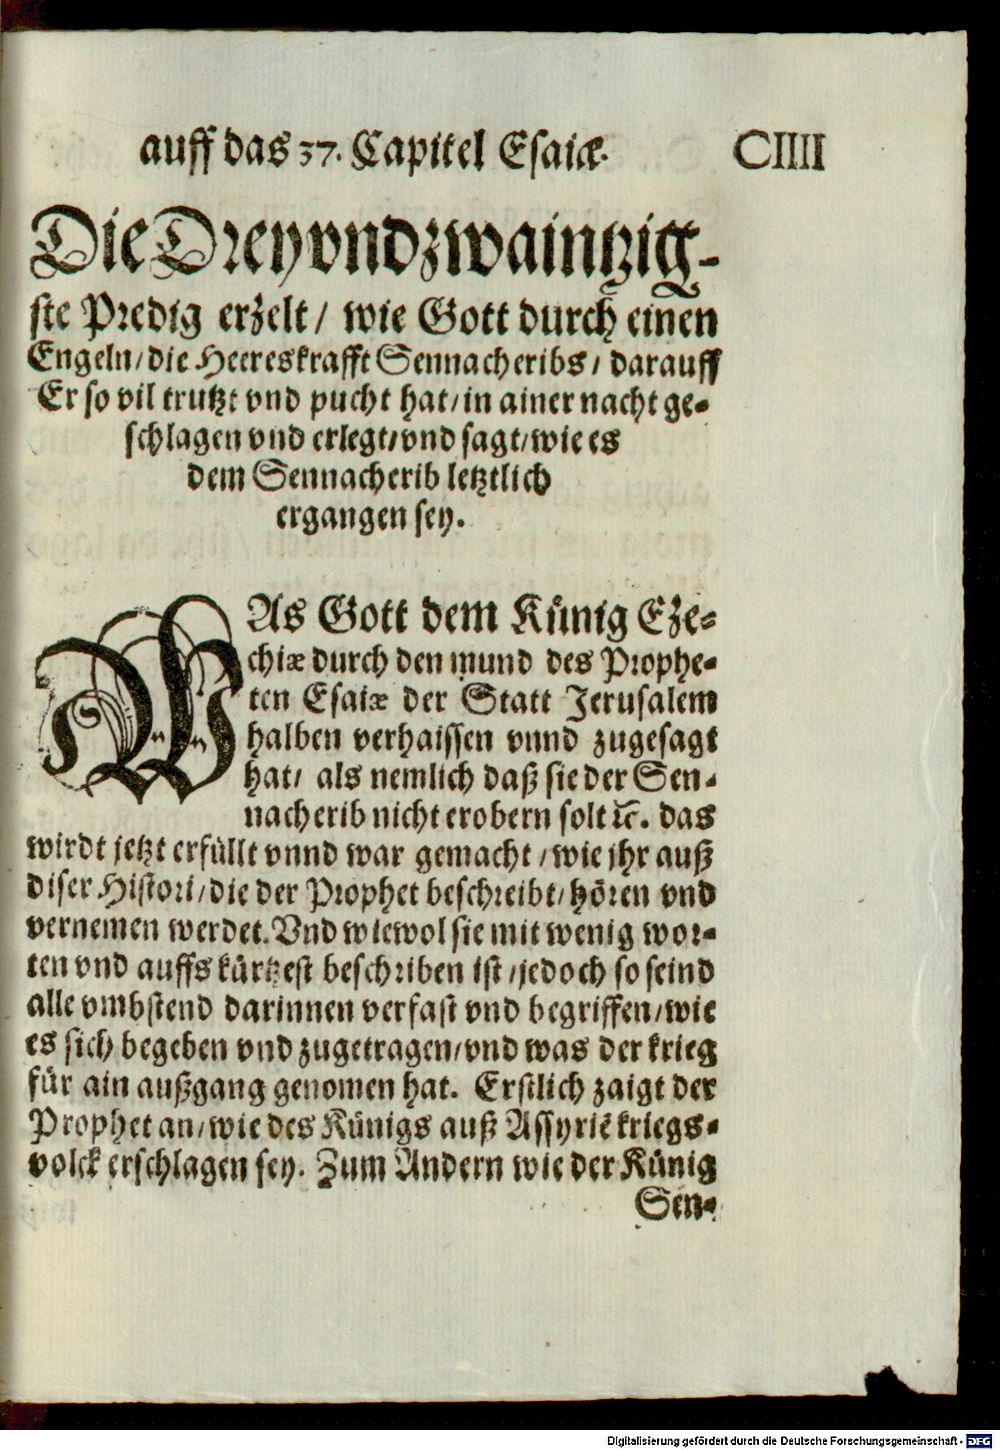 auff das 37. Capitel Esaiæ. CIIII
Die Dreyvndzwaintzig-
ste Predig erzelt / wie Gott durch einen
Engeln / die Heereskrafft Sennacheribs / darauff
Er so vil trutzt vnd pucht hat / in ainer nacht ge-
schlagen vnd erlegt / vnd sagt / wie es
dem Sennacherib letztlich
ergangen sey.
WAs Gott dem Künig Eze-
chiæ durch den mund des Prophe-
ten Esaiæ der Statt Jerusalem
halben verhaissen vnnd zugesagt
hat / als nemlich daß sie der Sen-
nacherib nicht erobern solt ꝛc̃. das
wirdt jetzt erfüllt vnnd war gemacht / wie jhr auß
diser Histori / die der Prophet beschreibt / hören vnd
vernemen werdet. Vnd wiewol sie mit wenig wor-
ten vnd auffs kürtzest beschriben ist / jedoch so seind
alle vmbstend darinnen verfast vnd begriffen / wie
es sich begeben vnd zugetragen / vnd was der krieg
für ain außgang genomen hat. Erstlich zaigt der
Prophet an / wie des Künigs auß Assyriẽ kriegs-
volck erschlagen sey. Zum Andern wie der Künig
Sen-
Digitalisierung gefördert durch die Deutsche Forschungsgemeinschaft - DFG